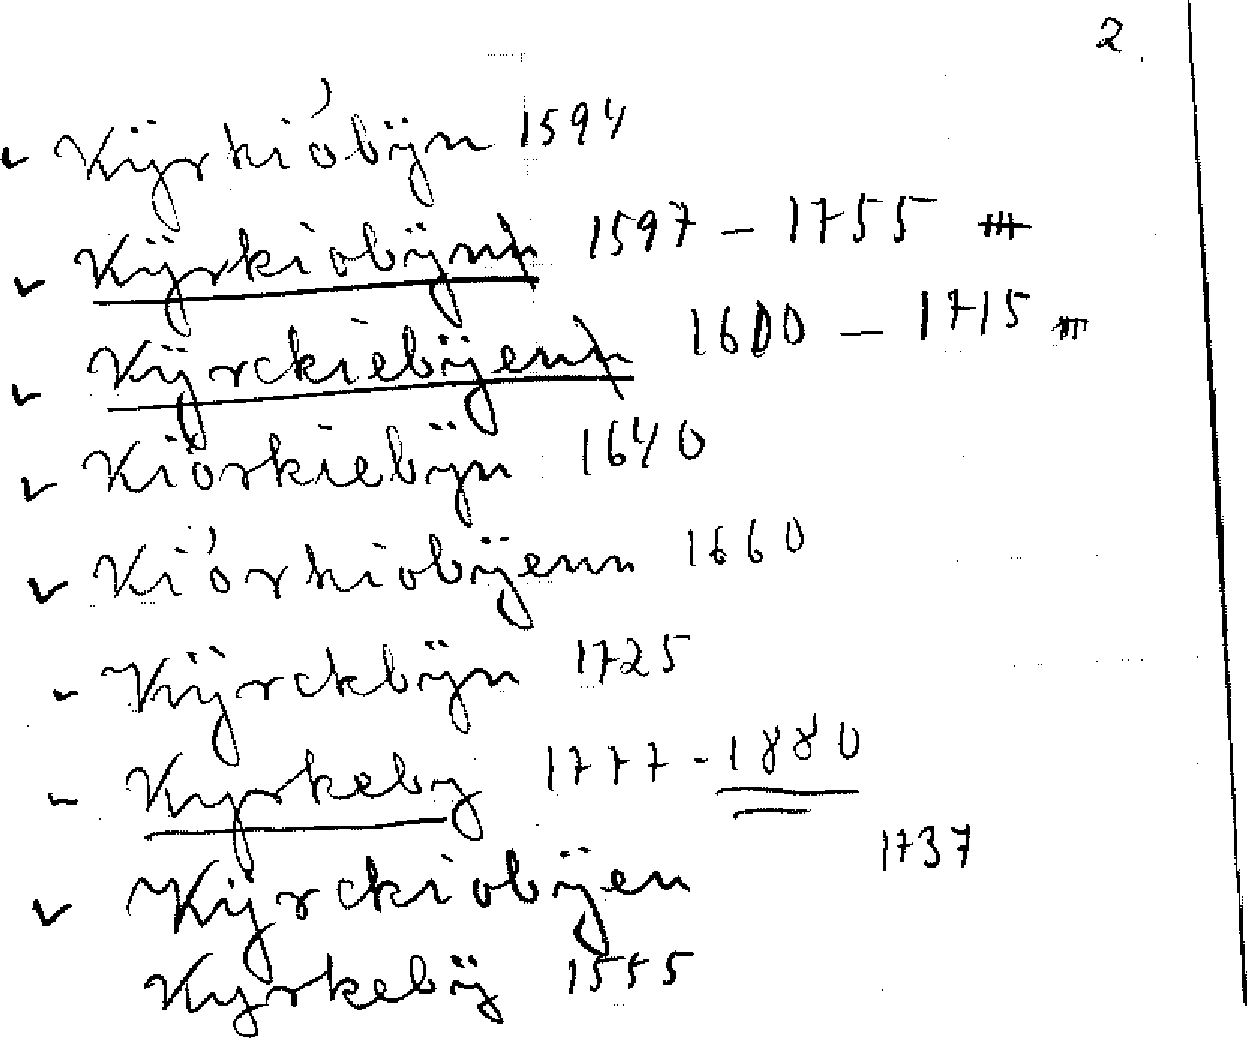 2.
✓ Kÿrkióbÿn 1594
✓ Kÿrkiobÿnn 1597 – 1755 #
✓ Kÿrckiebÿenn 1600 – 1715 #
✓ Kiörkiebÿn 1640
✓ Kiórkiobÿenn 1660
- Kÿrckbÿn 1725
- Kyrkeby 1777 - 1880
✓ Kÿrckiobÿen 1737
Kyrkebÿ 1555